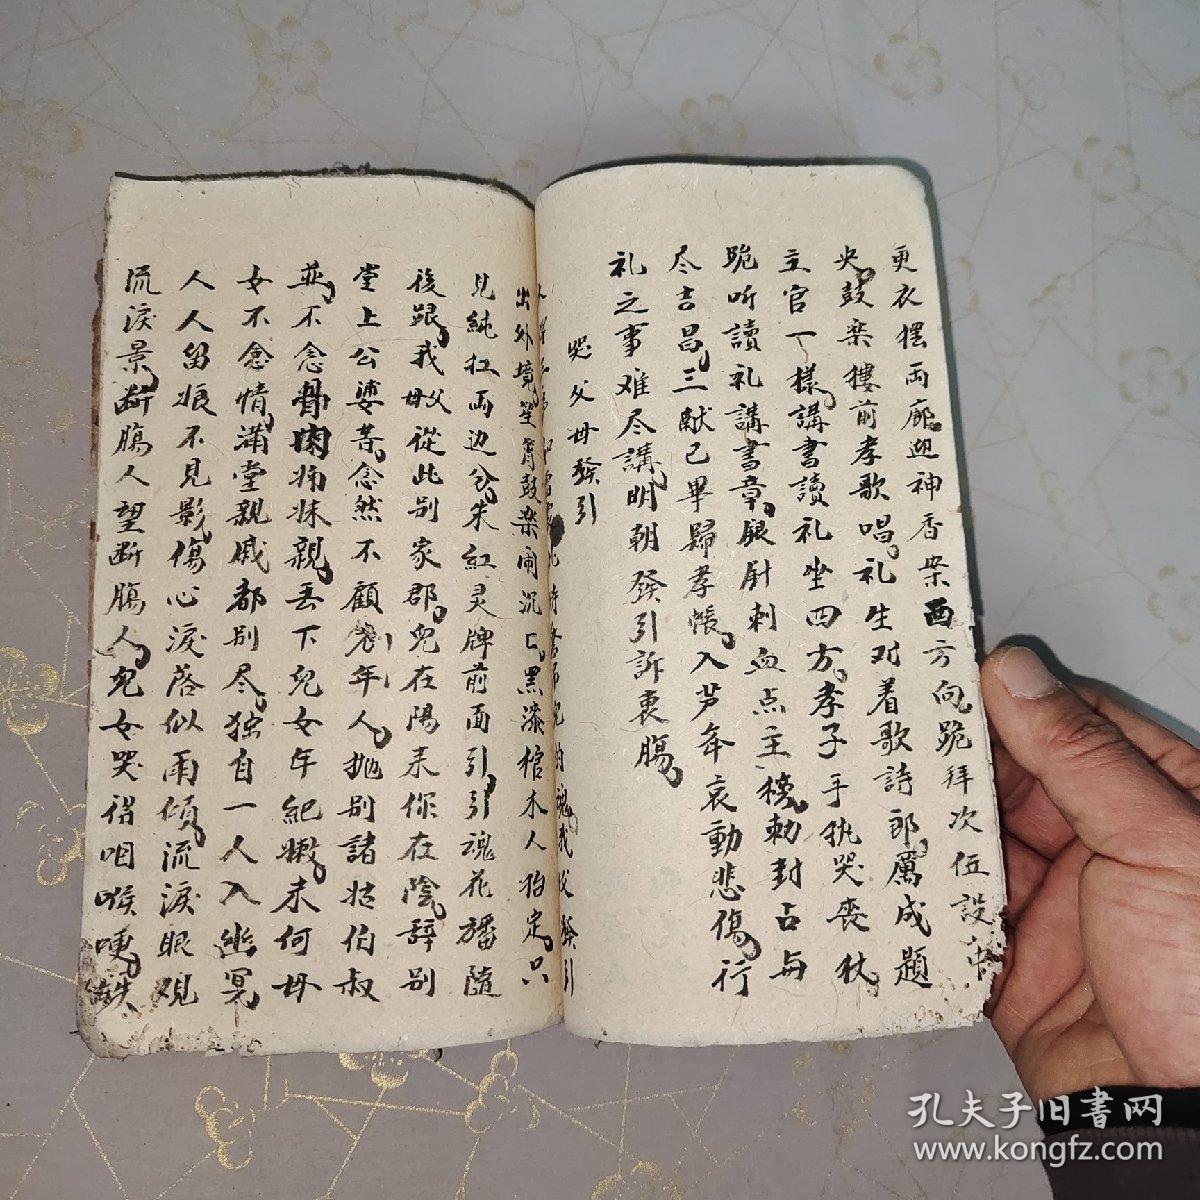 更衣摆両廊迎神香案西方向跪拜次伍設中
央鼓楽摟前孝歌唱礼生对着歌詩郎属成題
主官一樣講書讀礼坐四方孝子手执哭喪杖
跪听讀礼講書章銀針刺血点主榜勅封占与
尽吉昌三献已畢歸孝帳入芦年哀動悲傷行
礼之事难尽講明朝發引訴衷腸
哭父母發引
出外境笙簫鼓楽闹沉匕黑漆棺木人抬定只
見純扛両边分朱紅灵牌前面引引魂花旛隨
後跟我父母從此别家郡兒在陽来你在陰辞别
堂上公婆苦念然不顧老年人抛别諸姑伯叔
並不念骨肉姊妹親丢下兒女年紀嫩未何母
女不念情滿堂親戚都别尽独自一人入幽冥
人人留娘不見影傷心淚落似雨傾流淚眼观
流淚景断腸人望断腸人兒女哭得咽喉哽鉄
孔夫子旧書网
www.kongfz.com